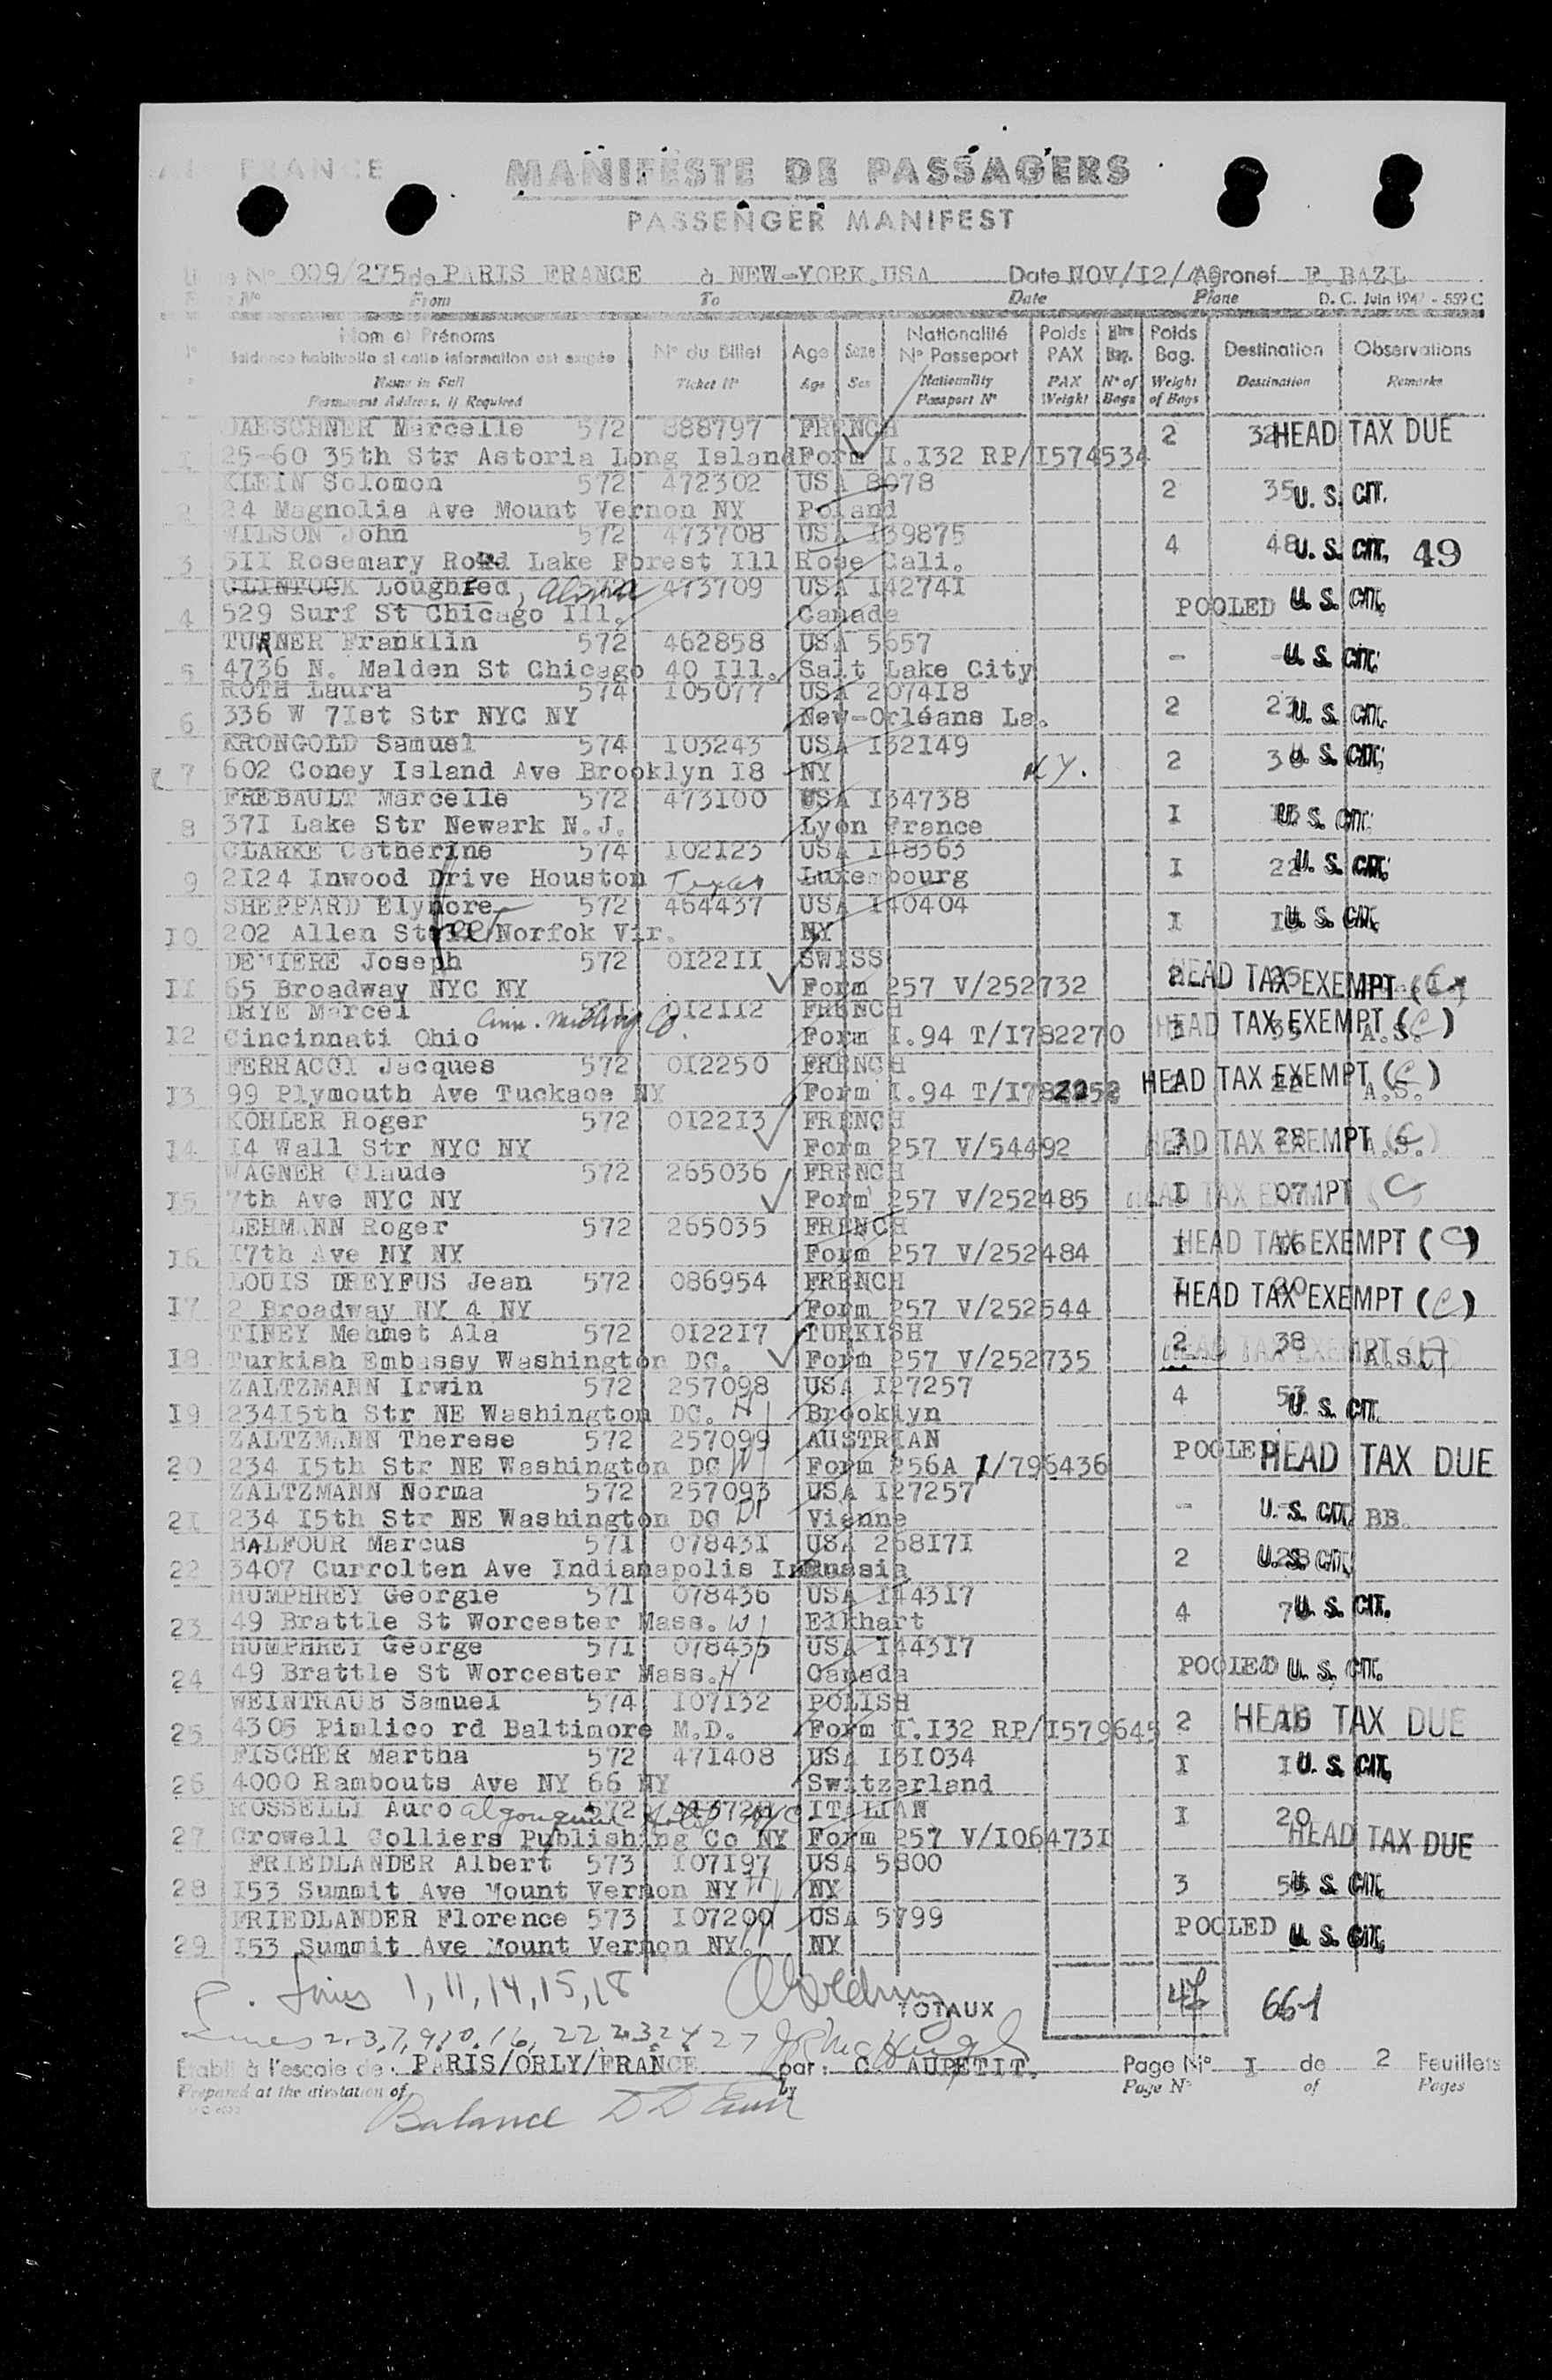 FRANCE
MANIFESTE DE PASSAGERS
PASSENGER MANIFEST
Nº 009/275 de PARIS FRANCE à NEW-YORK.USA Date NOV/I2/ Aéronef F.BAZL
Nº From To Date Plane D. C. Juin 194 - 559 C
Nom et Prénoms Nº du Billet Age Sexe Nationalité Poids Nbre Poids Destination Observations
Résidence habituelle si cette information est exigée Nº Passeport PAX Bag. Bag.
Name in Full Ticket Nº Age Sex Nationality PAX Nº of Weight Destination Remarks
Permanent Address, if Required Passport Nº Weight Bags of Bags
DAESCHNER Marcelle 572 888797 FRENCH 2 32 HEAD TAX DUE
25-60 35th Str Astoria Long Island Form I.I32 RP/I574534
KLEIN Solomon 572 472302 USA 8078 2 35 U. S. CIT.
2 24 Magnolia Ave Mount Vernon NY Poland
WILSON John 572 473708 USA I39875 4 48 U. S. CIT. 49
3 5II Rosemary Road Lake Forest Ill Rose Cali.
CLINTOCK Loughred, 572 473709 USA I4274I POOLED U. S. CIT.
4 529 Surf St Chicago Ill. Canada
TURNER Franklin 572 462858 USA 5657 - U. S. CIT.
5 4736 N. Malden St Chicago 40 Ill. Salt Lake City
ROTH Laura 574 I05077 USA 2074I8 2 23 U. S. CIT.
6 336 W 7Ist Str NYC NY New-Orléans La.
KRONGOLD Samuel 574 I03243 USA I32I49 2 U. S. CIT.
7 602 Coney Island Ave Brooklyn I8 NY N.Y.
FREBAULT Marcelle 572 473I00 USA I34738 I U. S. CIT.
8 37I Lake Str Newark N.J. Lyon France
CLARKE Catherine 574 I02I23 USA I48363 I 22 U. S. CIT.
9 2I24 Inwood Drive Houston Texas Luxembourg
SHEPPARD Elynore 572 464437 USA I40404 I U. S. CIT.
I0 202 Allen Norfok Vir. NY
DEMIERE Joseph 572 0I22II SWISS
II 65 Broadway NYC NY Form 257 V/252732 2 25 HEAD TAX EXEMPT
DRYE Marcel 57I 0I2II2 FRENCH
I2 Cincinnati Ohio Form I.94 T/I782270 35 HEAD TAX EXEMPT (C) A.S.
FERRACCI Jacques 572 0I2250 FRENCH
I3 99 Plymouth Ave Tuckaoe NY Form I.94 T/I782252 HEAD TAX EXEMPT (C) A.S.
KOHLER Roger 572 0I22I3 FRENCH
I4 I4 Wall Str NYC NY Form 257 V/54492 3 28 HEAD TAX EXEMPT A.S.
WAGNER Claude 572 265036 FRENCH
I5 7th Ave NYC NY Form 257 V/252485 I 07 HEAD TAX EXEMPT (C)
LEHMANN Roger 572 265035 FRENCH
I6 I7th Ave NY NY Form 257 V/252484 I HEAD TAX EXEMPT (C)
LOUIS DREYFUS Jean 572 086954 FRENCH
I7 2 Broadway NY 4 NY Form 257 V/252544 I 20 HEAD TAX EXEMPT (C)
TINEY Mehmet Ala 572 0I22I7 TURKISH 2 38
I8 Turkish Embassy Washington DC. Form 257 V/252735 HEAD TAX EXEMPT A.S.
ZALTZMANN Irwin 572 257098 USA I27257 4 53 U. S. CIT.
I9 234I5th Str NE Washington DC. H Brooklyn
ZALTZMANN Therese 572 257099 AUSTRIAN POOLED HEAD TAX DUE
20 234 I5th Str NE Washington DC W Form 256A I/796436
ZALTZMANN Norma 572 257093 USA I27257 - U. S. CIT. BB.
2I 234 I5th Str NE Washington DC D Vienne
BALFOUR Marcus 57I 07843I USA 268I7I 2 28 U. S. CIT.
22 3407 Currolten Ave Indianapolis In Russia
HUMPHREY Georgie 57I 078436 USA I443I7 4 U. S. CIT.
23 49 Brattle St Worcester Mass. W Elkhart
HUMPHREY George 57I 078435 USA I443I7 POOLED U. S. CIT.
24 49 Brattle St Worcester Mass. H Canada
WEINTRAUB Samuel 574 I07I32 POLISH
25 4305 Pimlico rd Baltimore M.D. Form I.I32 RP/I579645 2 HEAD TAX DUE
FISCHER Martha 572 47I408 USA I3I034 I U. S. CIT.
26 4000 Rambouts Ave NY 66 NY Switzerland
ROSSELLI Auro Algonquin Hotel NYC 572 ITALIAN I 20
27 Crowell Colliers Publishing Co NY Form 257 V/I06473I HEAD TAX DUE
FRIEDLANDER Albert 573 I07I97 USA 5800
28 I53 Summit Ave Mount Vernon NY H NY 3 U. S. CIT.
FRIEDLANDER Florence 573 I07200 USA 5799 POOLED U. S. CIT.
29 I53 Summit Ave Mount Vernon NY. NY
Lines 1, 11, 14, 15, 18 TOTAUX 47 661
Etabli à l'escale de: PARIS/ORLY/FRANCE par: C. AUPETIT. Page Nº I de 2 Feuillets
Prepared at the airstation of by Page Nº of Pages
Balance